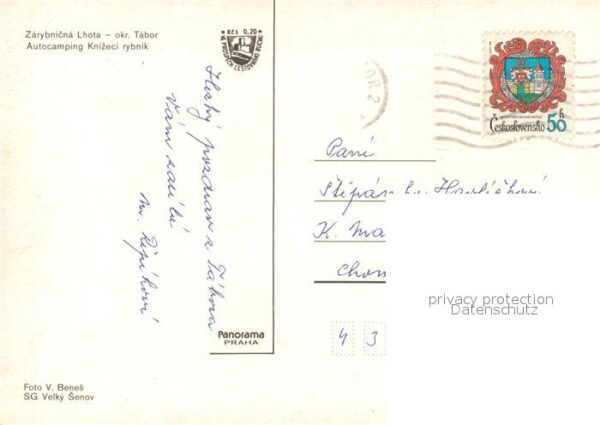 Zárybničná Lhota – okr. Tábor
Autocamping Knížecí rybník
Kčs 0,20
VE PROSPĚCH CESTOVNÍHO RUCHU
Hezký pozdrav z Tábora
Vám zasílá
M.
Československo 50 h
TÁBOR 2
Paní
Štěpánka Havlíčková
K. Ma
Chom
privacy protection
Datenschutz
4 3
Panorama
PRAHA
Foto V. Beneš
SG Velký Šenov